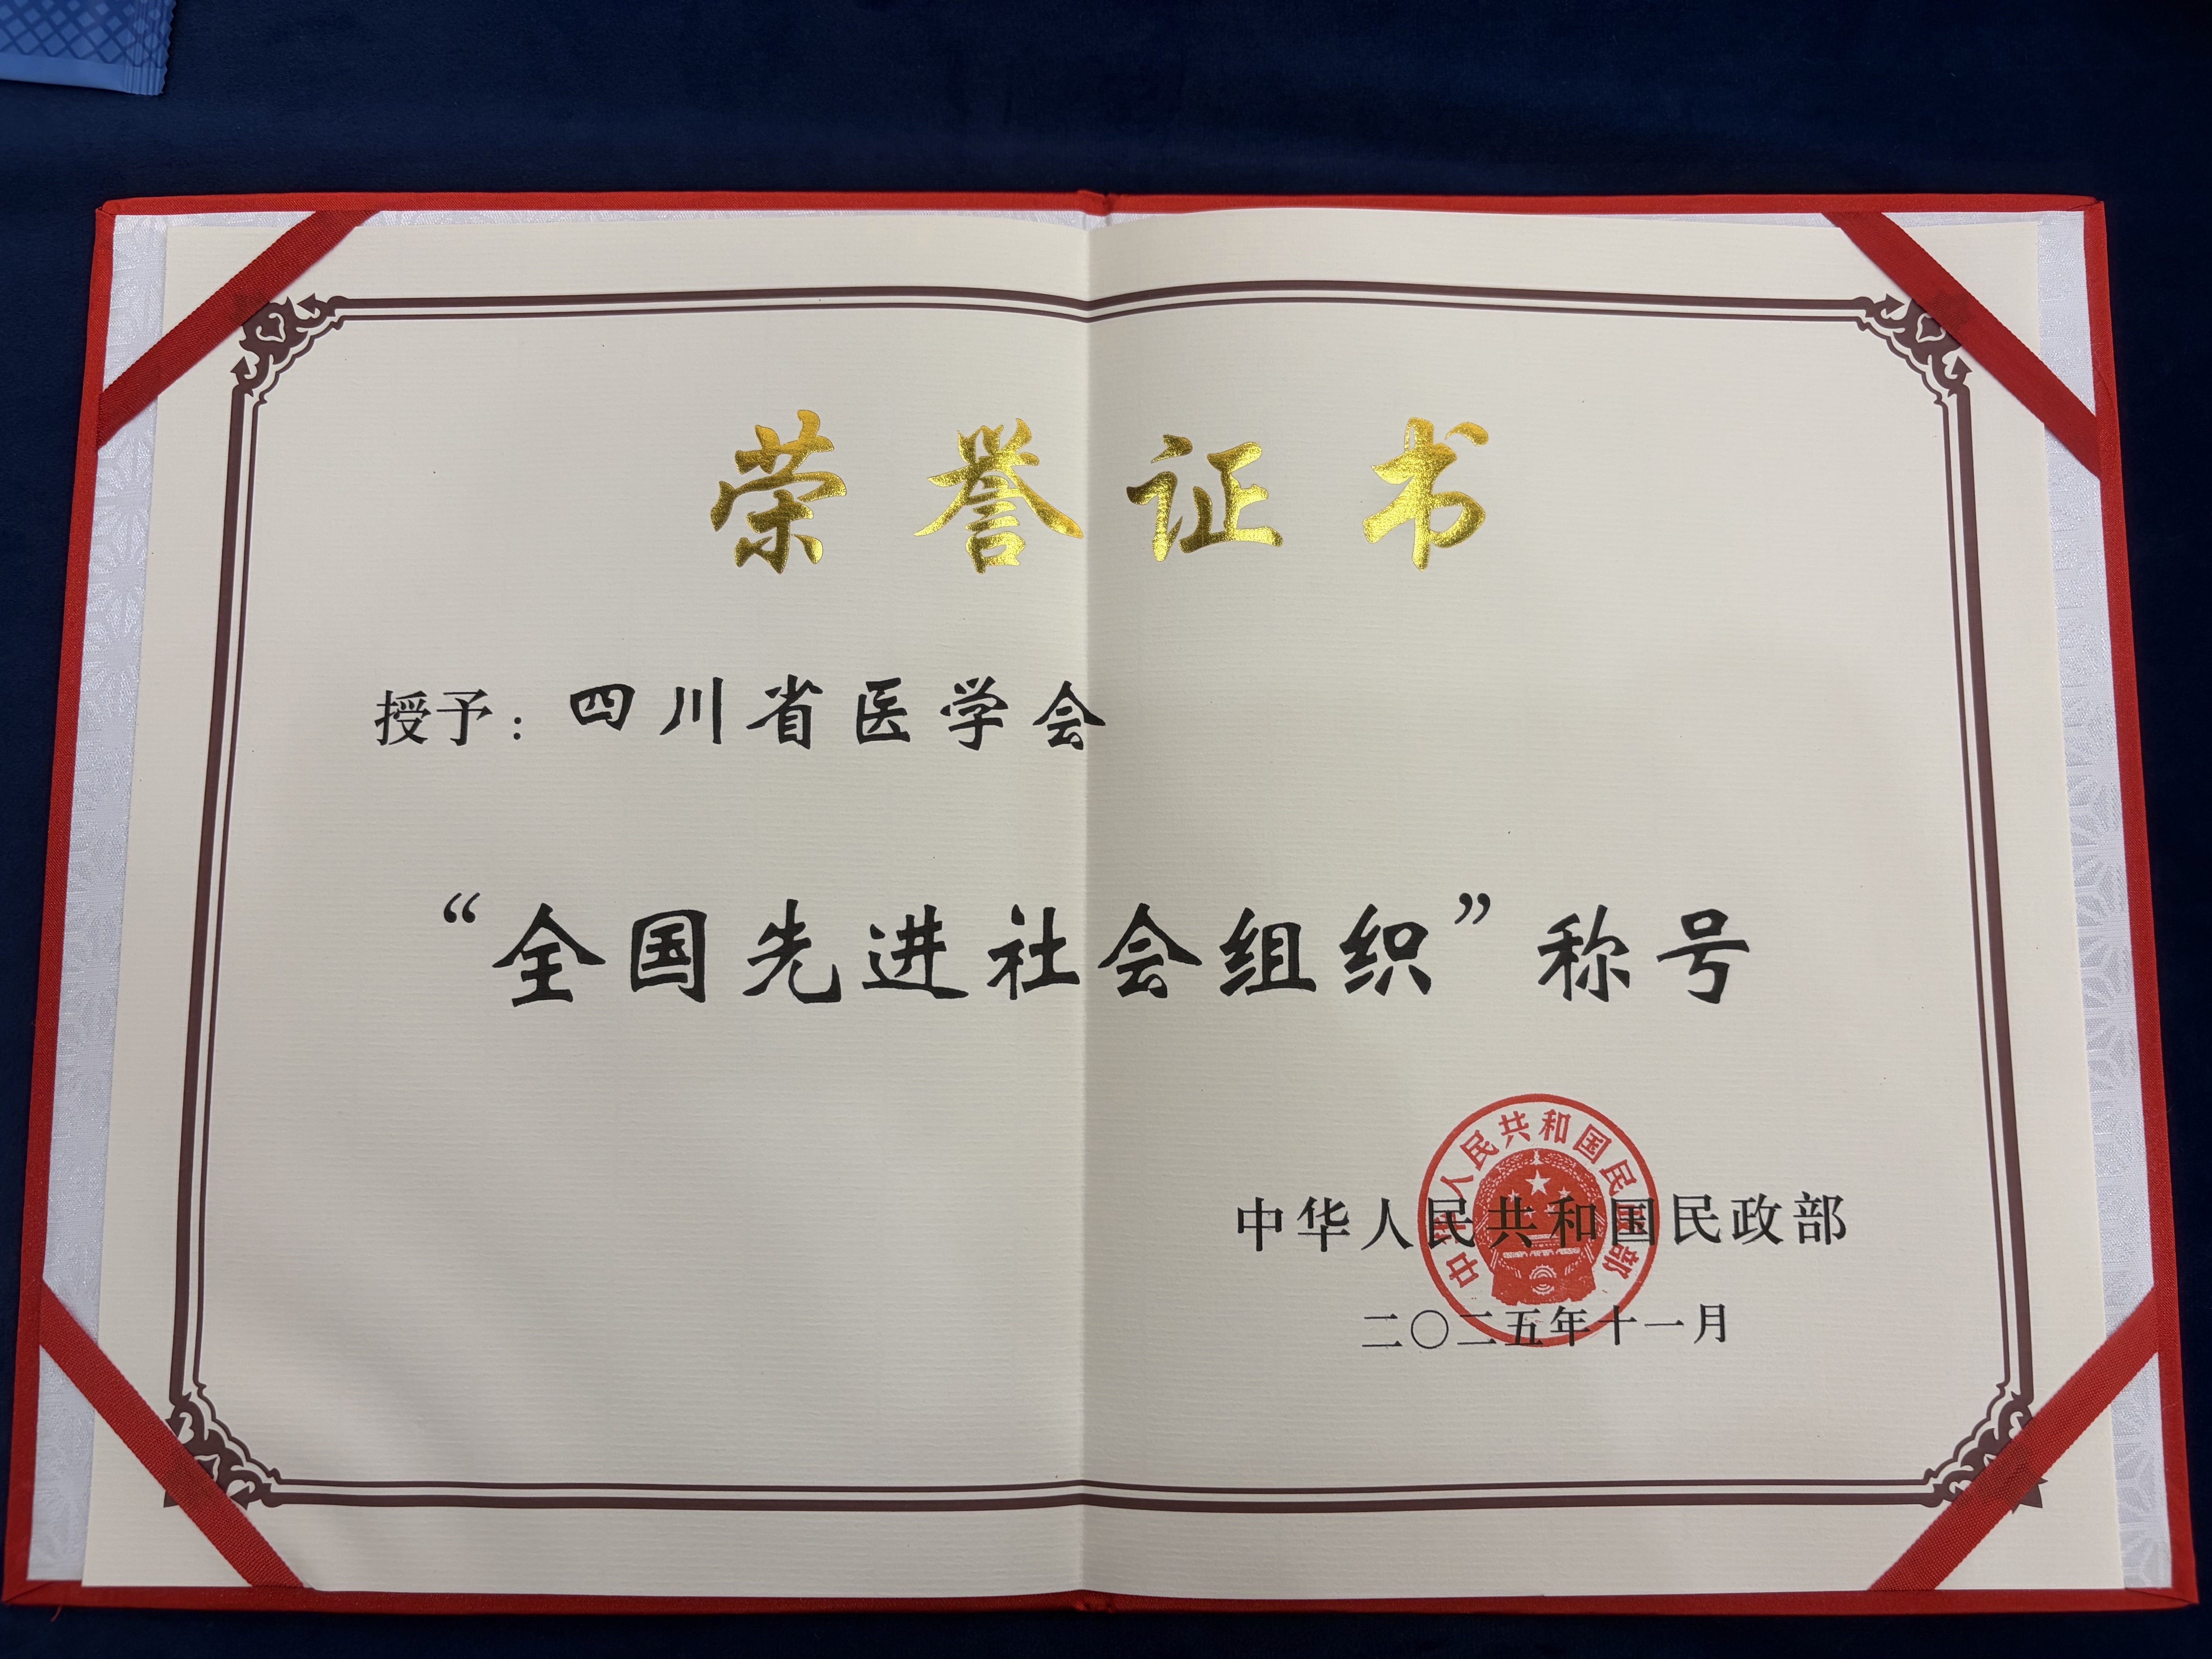 荣誉证书
授予：四川省医学会
“全国先进社会组织”称号
中华人民共和国民政部
中华人民共和国民政部
二〇二五年十一月